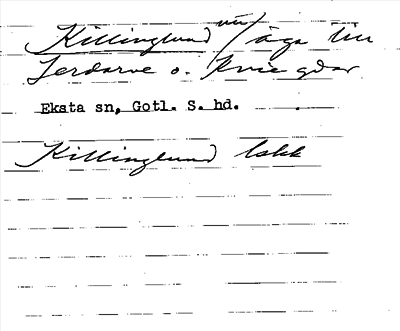 Killinglund / äga till
Lerdarve o. Kvie gdar
Eksta sn, Gotl. S. hd.
Killinglund lokk